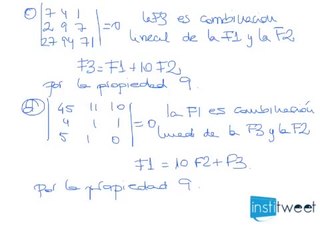 c) |7 4 1| = 0 la F3 es combinación
|2 9 7| lineal de la F1 y la F2
|27 94 71|
F3 = F1 + 10 F2
por la propiedad 9.
|45 11 10| la F1 es combinación
|4 1 1| = 0 lineal de la F3 y la F2
|5 1 0|
F1 = 10 F2 + F3.
por la propiedad 9.
institweet